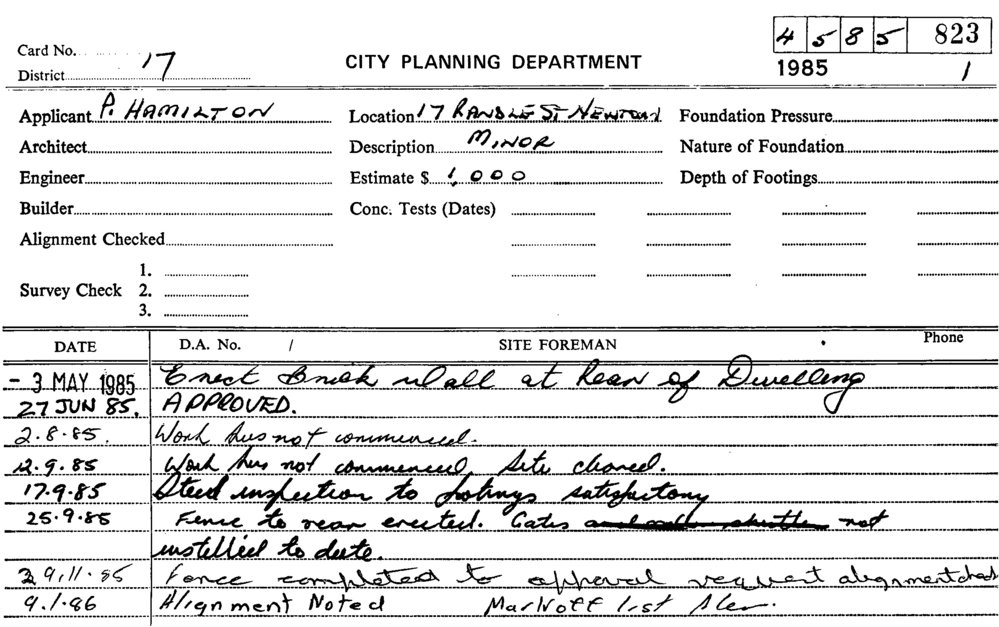 4 5 8 5 823
Card No. 17
CITY PLANNING DEPARTMENT
District
1985 1
Applicant P. HAMILTON Location 17 RANDLE ST NEWTOWN Foundation Pressure
Architect Description MINOR Nature of Foundation
Engineer Estimate $ 1,000 Depth of Footings
Builder Conc. Tests (Dates)
Alignment Checked
1.
Survey Check 2.
3.
DATE D.A. No. / SITE FOREMAN Phone
- 3 MAY 1985 Erect Brick Wall at Rear of Dwelling
27 JUN 85. APPROVED.
2.8.85. Work has not commenced.
12.9.85 Work has not commenced, Site cleared.
17.9.85 Steel inspection to footings satisfactory
25.9.85 Fence to rear erected. Gates not
installed to date.
29.11.85 Fence completed to approval request alignment check
9.1.86 Alignment Noted